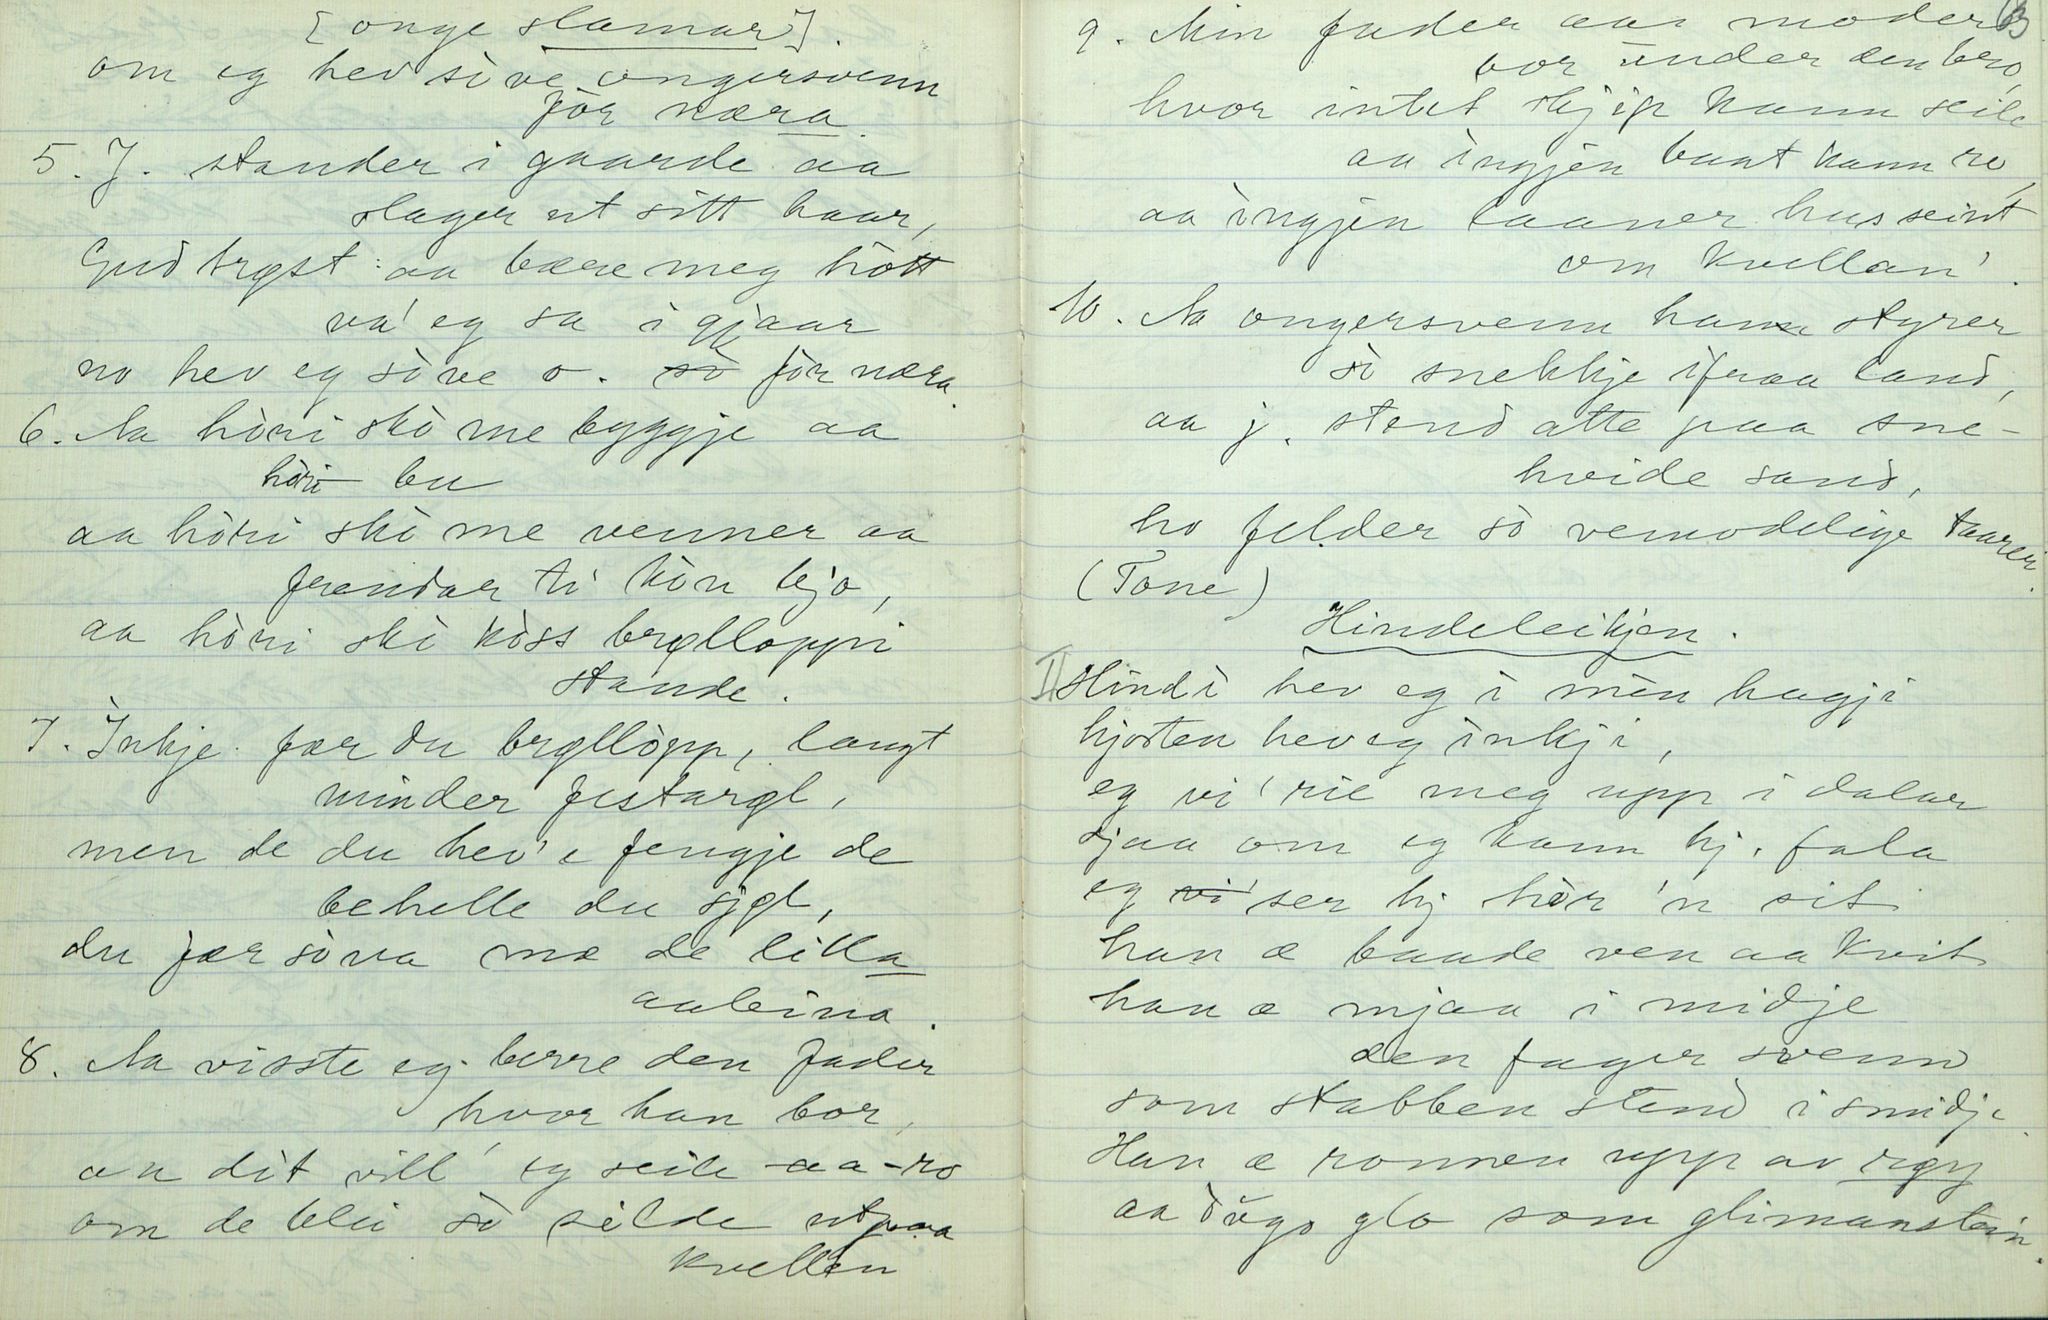 [onge slamar].
om eg hev sòve ongersvenn
fòr næra.
5. J. stander i gaarde aa
slager ut sitt haar,
Gud trøst : aa bære meg hòtt
va' eg sa i gjaar
no hev eg sòve o. sò fòr næra.
6. Aa hòri skò me byggje aa
hòri bu
aa hòri skò me venner aa
frendar ti kòn bjo,
aa hòri skò kòss brølloppi
stande.
7. Inkje fær du brøllòpp, langt
minder festarøl,
men de du hev 'e fengje de
behelle du sjøl,
du fær sòva mæ de litla
aaleina.
8. Aa visste eg berre den fader
hvor han bor,
aa dit vill' eg seile aa ro
om de blei so silde utpaa
kvellen
9. Min fader aa moder
bor under den bro,
hvor intet skjip kann seile
aa ingjen baat kann ro,
aa ingjen laaner hus seint
om kvellan'.
10. Aa ongersvenn hann styrer
si snekkje ifraa land,
aa j. stend atte paa sne-
hvide sand,
ho felder sò vemodelige taarer.
(Tone)
Hindeleikjen.
II Hindi hev eg i mèn hagji
hjorten hev eg inkji,
eg vi' rie meg upp i dalar
sjaa om eg kann hj. fala
eg vi' ser hj hòr 'n sit
han æ baade ven aa kvit
han æ mjaa i midje
den fager svenn
som stabben stend i smidje
Han æ ronnen upp av røgg
aa òugo glo som glimanstein.